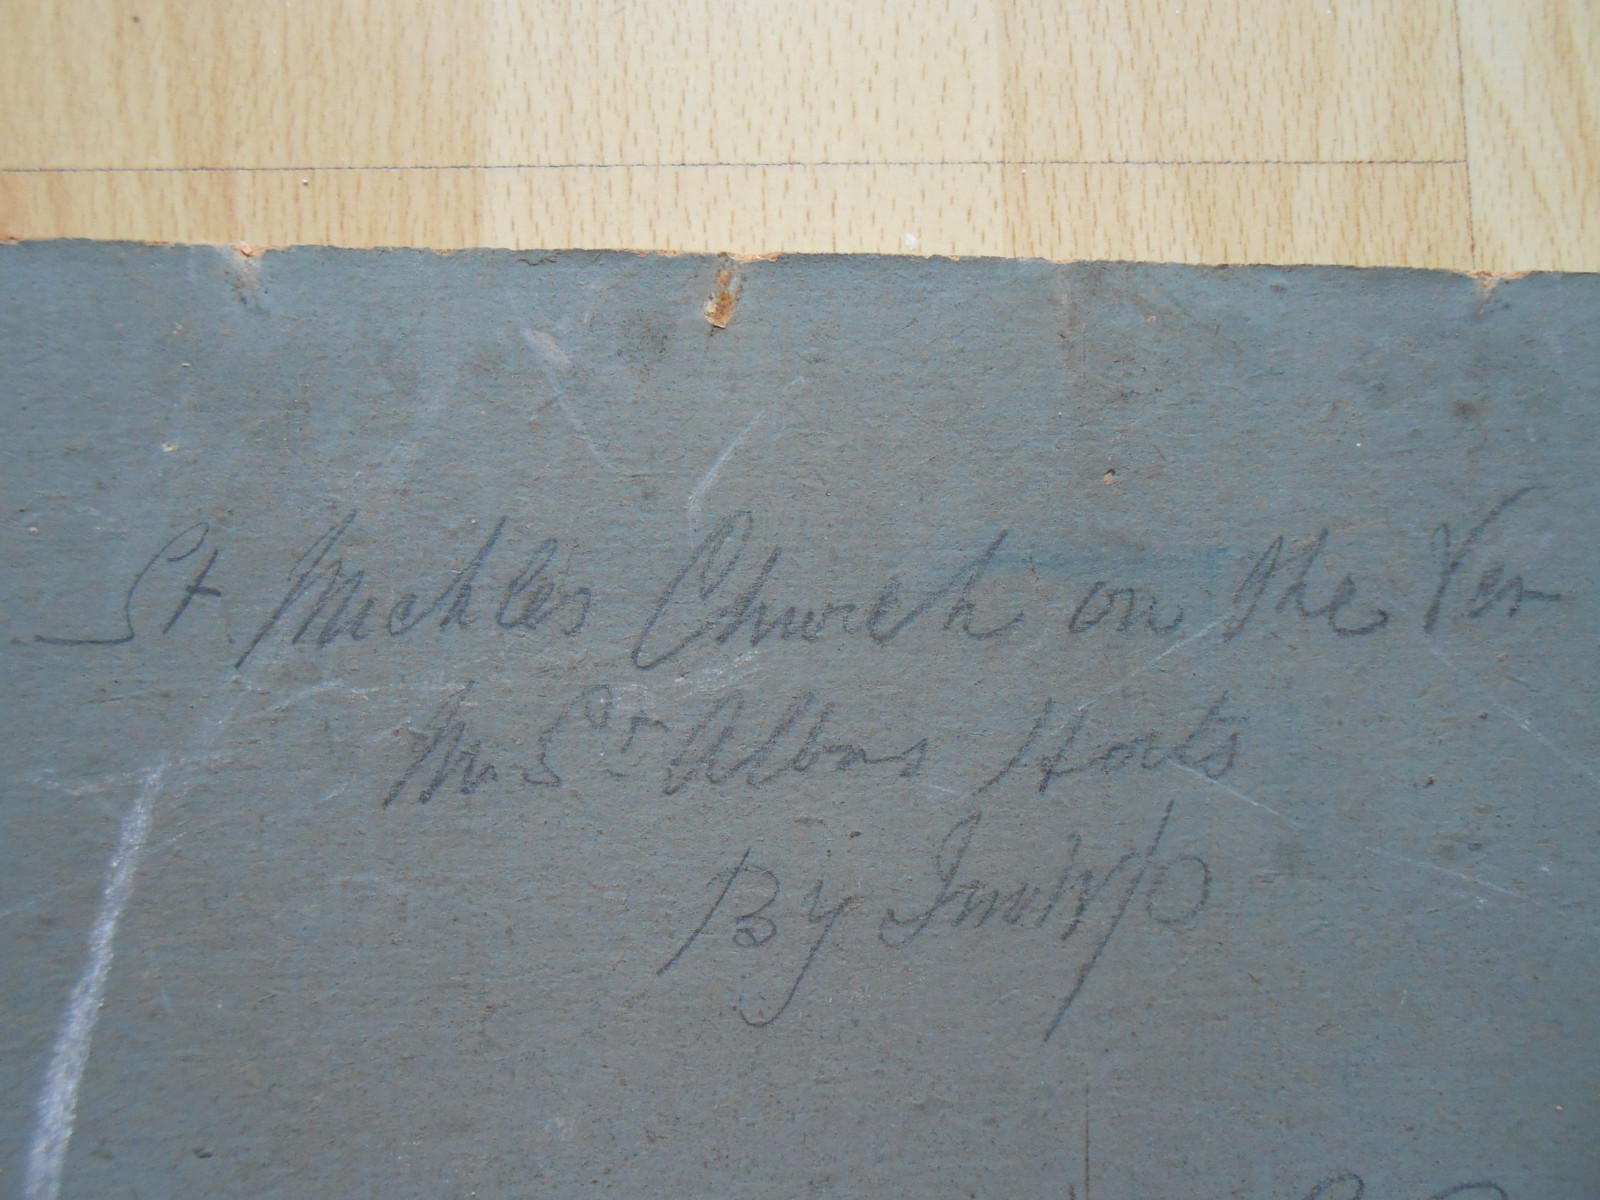 St Michles Church on the Ver
Nr St Albans Herts
By